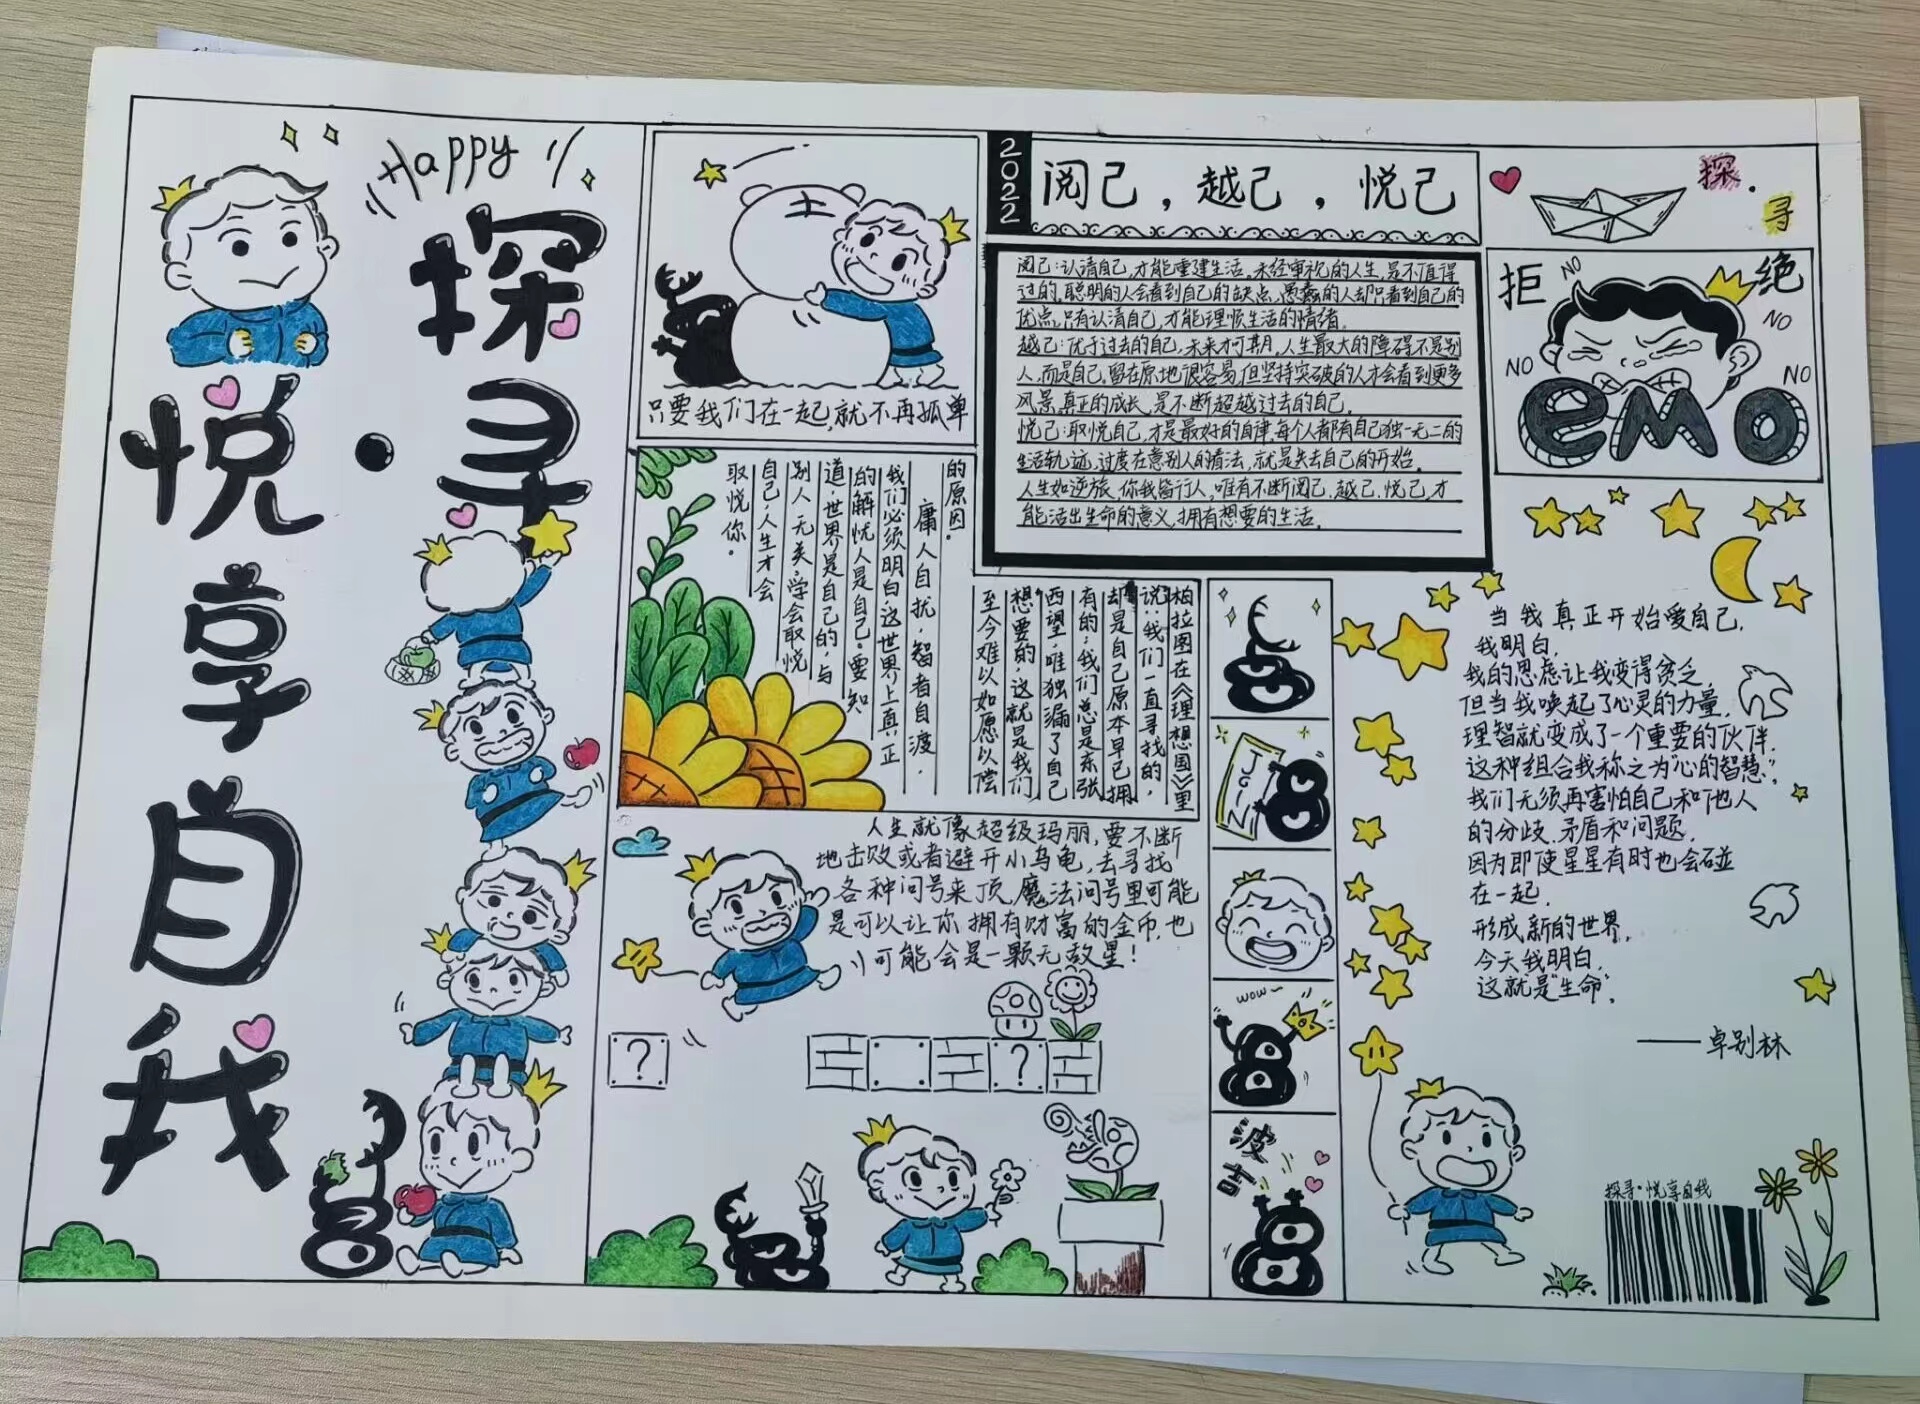 Happy
探寻
·
悦享自我
只要我们在一起,就不再孤单
2022
阅己，越己，悦己
阅己:认清自己,才能重建生活。未经审视的人生,是不值得
过的。聪明的人会看到自己的缺点,愚蠢的人却只看到自己的
优点。只有认清自己,才能理顺生活的情绪。
越己:优于过去的自己,未来才可期。人生最大的障碍不是别
人,而是自己。留在原地很容易,但坚持突破的人才会看到更多
风景。真正的成长,是不断超越过去的自己。
悦己:取悦自己,才是最好的自律。每个人都有自己独一无二的
生活轨迹,过度在意别人的看法,就是失去自己的开始。
人生如逆旅,你我皆行人,唯有不断阅己.越己.悦己,才
能活出生命的意义,拥有想要的生活。
探.
寻
拒绝
NO
NO
NO
NO
emo
柏拉图在《理想国》里
说:我们一直寻找的,
却是自己原本早已拥
有的;我们总是东张
西望,唯独漏了自己
想要的,这就是我们
至今难以如愿以偿
的原因。
庸人自扰,智者自渡,
我们必须明白这世界上真正
的解忧人是自己。要知
道,世界是自己的,与
别人无关,学会取悦
自己,人生才会
取悦你。
人生就像超级玛丽,要不断
地击败或者避开小乌龟,去寻找
各种问号来顶,魔法问号里可能
是可以让你拥有财富的金币,也
可能会是一颗无敌星!
?
?
JOIN
wow~
波吉
当我真正开始爱自己,
我明白,
我的思虑让我变得贫乏,
但当我唤起了心灵的力量,
理智就变成了一个重要的伙伴,
这种组合我称之为"心的智慧",
我们无须再害怕自己和他人
的分歧.矛盾和问题,
因为即使星星有时也会碰
在一起,
形成新的世界,
今天我明白,
这就是"生命"。
——卓别林
探寻·悦享自我